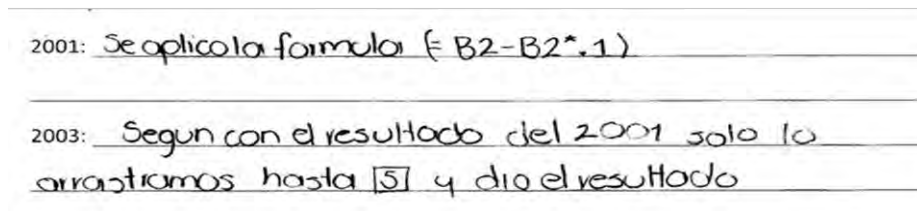 2001: Se aplico la formula (= B2-B2*.1)
2003: Segun con el resultado del 2001 solo lo
arrastramos hasta 5 y dio el resultado